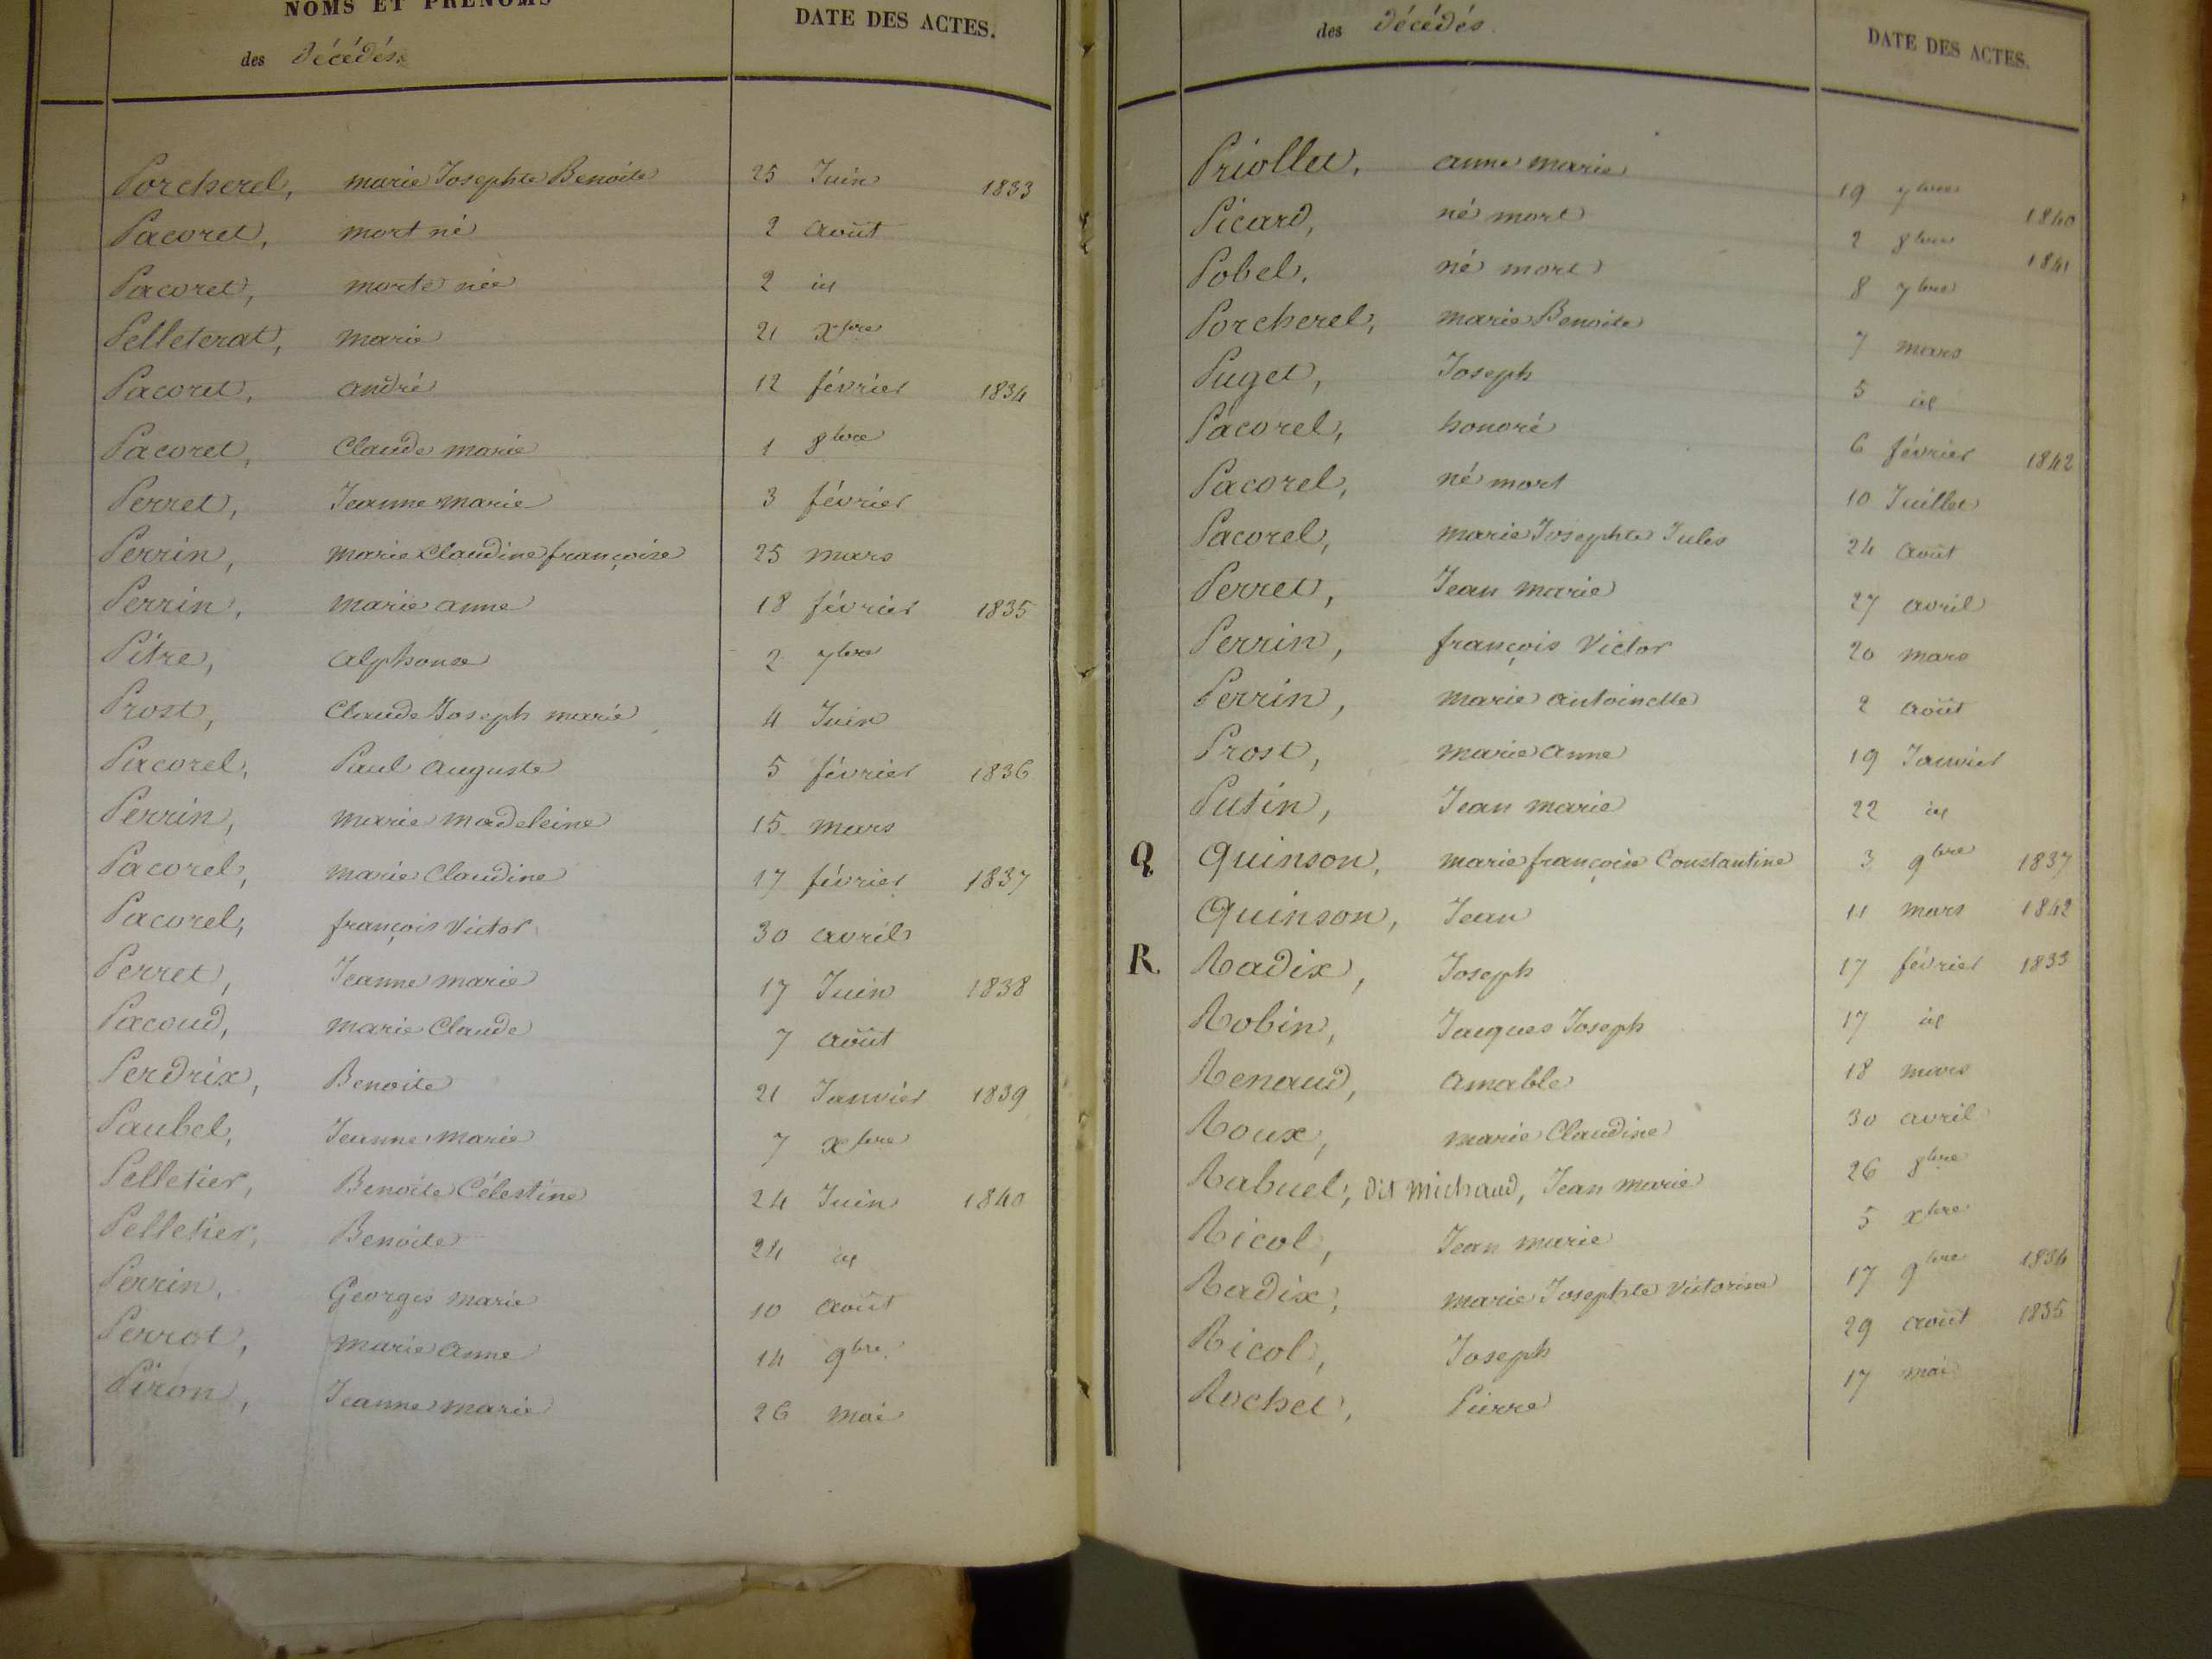 NOMS ET PRÉNOMS
des décédés
DATE DES ACTES.
Porcherel, marie Josephte Benoite 25 Juin 1833
Pacoret, mort né 2 août
Pacoret, morte née 2 id
Pelleterat, marie 21 xbre
Pacoret, andré 12 février 1834
Pacoret, Claude marie 1 8bre
Perret, Jeanne marie 3 février
Perrin, marie Claudine françoise 25 mars
Perrin, marie anne 18 février 1835
Pitre, alphonse 2 7bre
Prost, Claude Joseph marie 4 Juin
Pacorel, Paul auguste 5 février 1836
Perrin, marie madeleine 15 mars
Pacorel, marie Claudine 17 février 1837
Pacorel, françois Victor 30 avril
Perret, Jeanne marie 17 Juin 1838
Pacoud, marie Claude 7 août
Perdrix, Benoite 21 Janvier 1839
Paubel, Jeanne marie 7 xbre
Pelletier, Benoite Célestine 24 Juin 1840
Pelletier, Benoite 24 id
Perrin, Georges marie 10 août
Perrot, marie anne 14 9bre
Piron, Jeanne marie 26 mai
des décédés.
DATE DES ACTES.
Priollet, anne marie 19 7bre 1840
Picard, né mort 2 8bre 1841
Pobel, né mort 8 7bre
Porcherel, marie Benoite 7 mars
Puget, Joseph 5 id
Pacorel, honoré 6 février 1842
Pacorel, né mort 10 Juillet
Pacorel, marie Josephte Jules 24 août
Perret, Jean marie 27 avril
Perrin, françois Victor 20 mars
Perrin, marie antoinette 2 août
Prost, marie anne 19 Janvier
Putin, Jean marie 22 id
Q Quinson, marie françoise Constantine 3 9bre 1837
Quinson, Jean 11 mars 1842
R Radix, Joseph 17 février 1833
Robin, Jacques Joseph 17 id
Renaud, amable 18 mars
Roux, marie Claudine 30 avril
Rabuel, dit michaud, Jean marie 26 8bre
Ricol, Jean marie 5 xbre
Radix, marie Josephte Victorine 17 9bre 1834
Ricol, Joseph 29 août 1835
Rochet, Pierre 17 mai